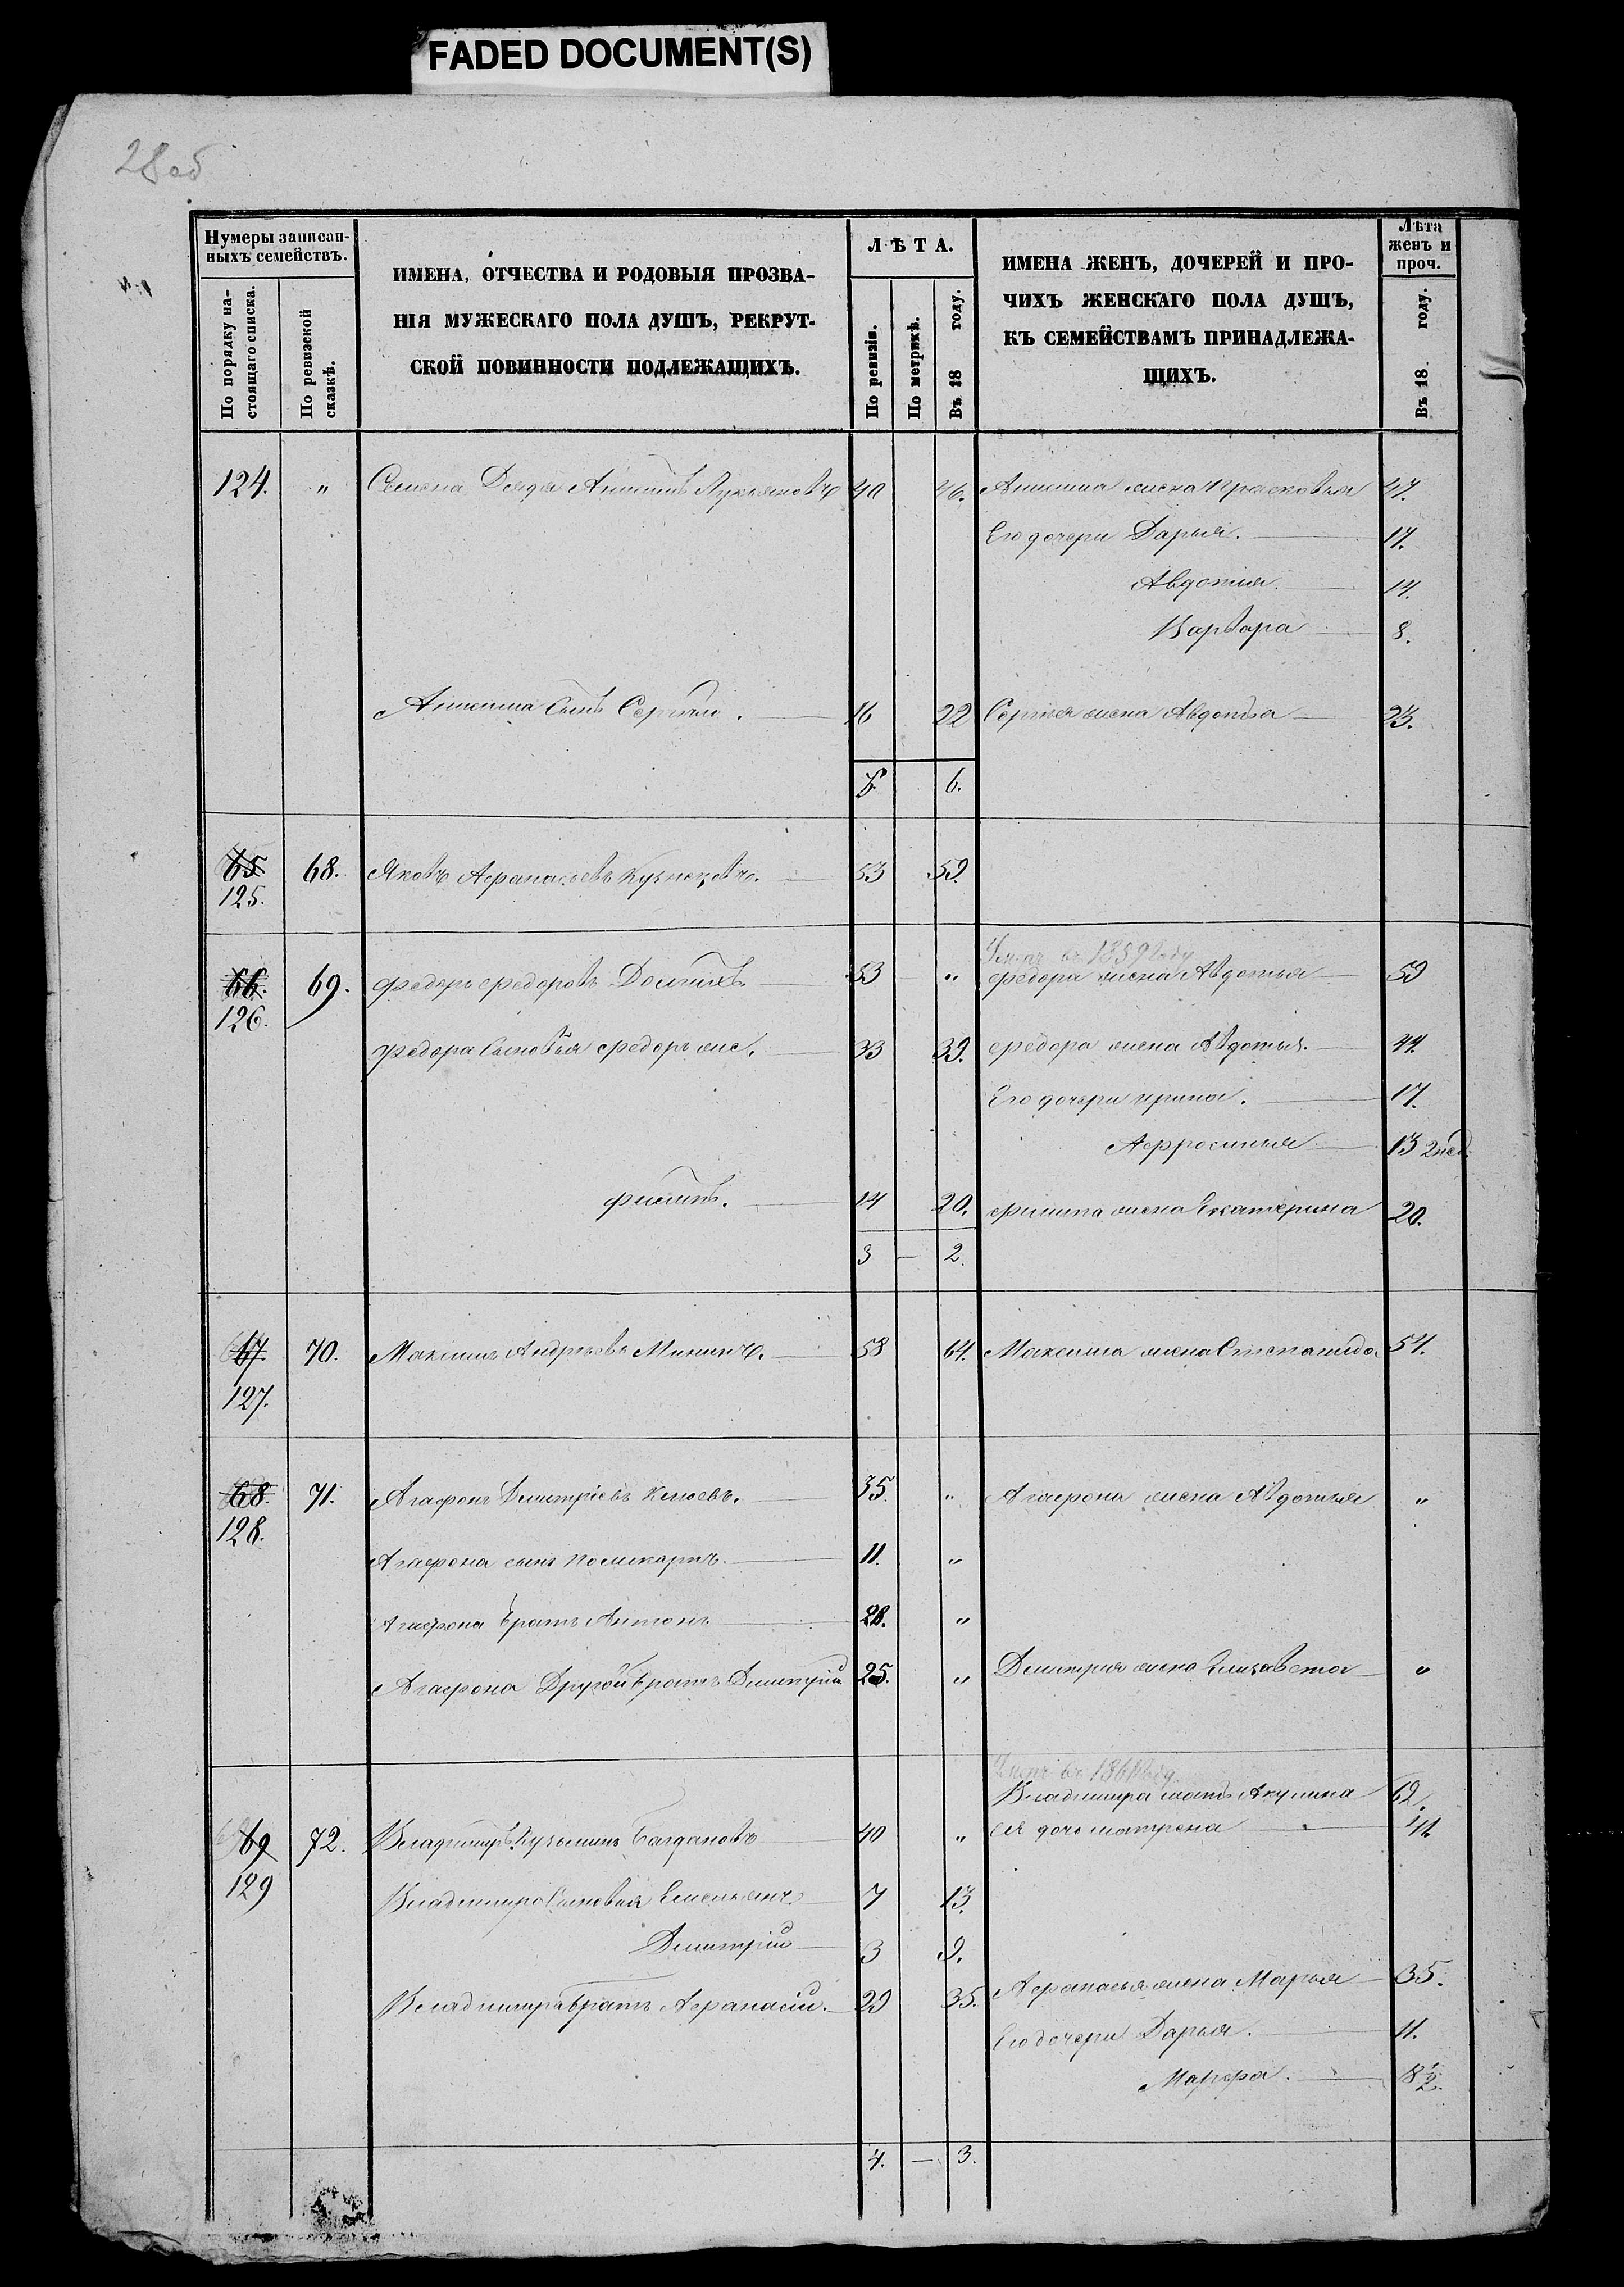 FADED DOCUMENT(S)
28 об
Нумеры записан-
ныхъ семействъ.
По порядку на-
стоящаго списка.
По ревизской
сказкѣ.
ИМЕНА, ОТЧЕСТВА И РОДОВЫЯ ПРОЗВА-
НІЯ МУЖЕСКАГО ПОЛА ДУШЪ, РЕКРУТ-
СКОЙ ПОВИННОСТИ ПОДЛЕЖАЩИХЪ.
ЛѢТА.
По ревизіи.
По метрикѣ.
Въ 18 году.
ИМЕНА ЖЕНЪ, ДОЧЕРЕЙ И ПРО-
ЧИХЪ ЖЕНСКАГО ПОЛА ДУШЪ,
КЪ СЕМЕЙСТВАМЪ ПРИНАДЛЕЖА-
ЩИХЪ.
Лѣта
женъ и
проч.
Въ 18. году.
124. " Семена Дядя Анисимъ Лукьяновъ 40 46. Анисима жена Прасковья 47.
Его дочери Дарья. 17.
Авдотья 14.
Варвара 8.
Анисима Сынъ Сергѣй. 16 22 Сергѣя жена Авдотья 23.
8 6.
65 68. Яковъ Афанасьевъ Кузнецовъ. 53 59.
125.
въ 1859 году
66. 69. Федоръ Федоровъ 53 " Федора жена Авдотья 59
126.
Федора Сыновья Федоръ же. 33 39. Федора жена Авдотья. 44.
Его дочери Ирина. 17.
Афросинья 13
Филипъ. 14 20. Филипа жена Екатерина 20.
3 — 2.
67. 70. Максимъ Андреевъ Мининъ. 58 64. Максима жена Степанида 54.
127.
68. 71. Агафонъ Дмитріевъ 35. " Агафона жена Авдотья "
128.
Агафона сынъ Поликарпъ. 11. "
Агафона братъ Антонъ 28. "
Агафона Другой братъ Дмитрій 25. " Дмитрія жена Елизавета "
Владимира мать Акулина 62.
69 72. Владимиръ Кузьминъ Багдановъ 40 " Ея дочь Матрена 41.
129
Владимира Сыновья Емельянъ 7 13.
Дмитрій 3 9.
Владимира братъ Афанасій. 29 35. Афанасья жена Марья 35.
Его дочери Дарья. 11.
Марфа. 8 1/2.
4. — 3.